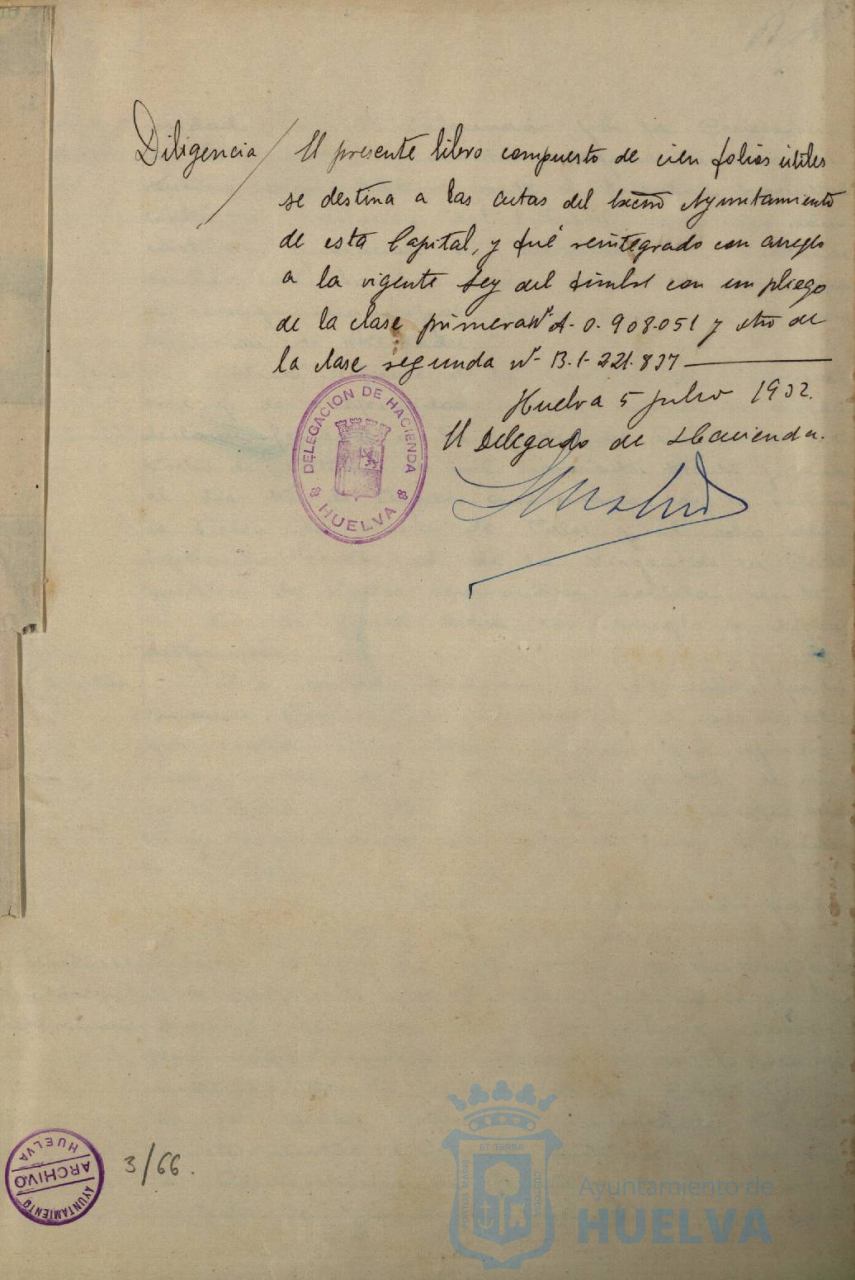 Diligencia/ El presente libro compuesto de cien folios útiles
se destina a las actas del Excmo Ayuntamiento
de esta Capital, y fué reintegrado con arreglo
a la vigente Ley del timbre con un pliego
de la clase primera Nº A- 0.908.051 y otro de
la clase segunda nº B.1.221.837
Huelva 5 Julio 1932.
El Delegado de Hacienda.
DELEGACION DE HACIENDA
HUELVA
AYUNTAMIENTO
ARCHIVO
HUELVA
3/66.
Ayuntamiento de
HUELVA